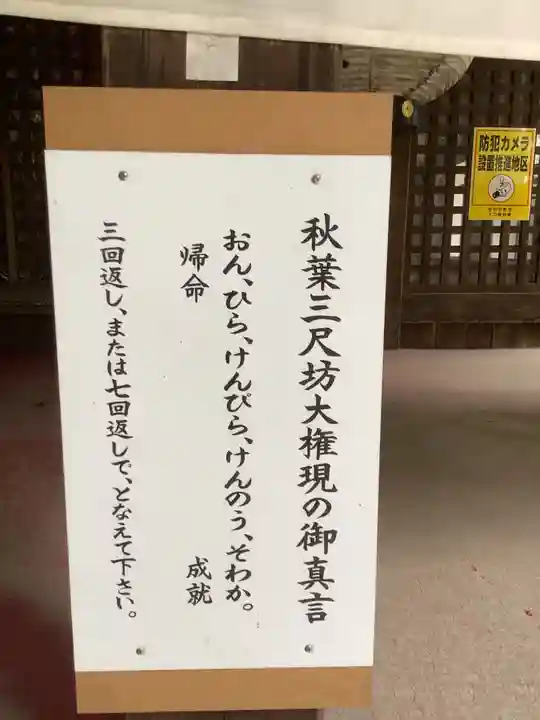 秋葉三尺坊大権現の御真言
おん、ひら、けんぴら、けんのう、そわか。
帰命 成就
三回返し、または七回返しで、となえて下さい。
防犯カメラ
設置推進地区